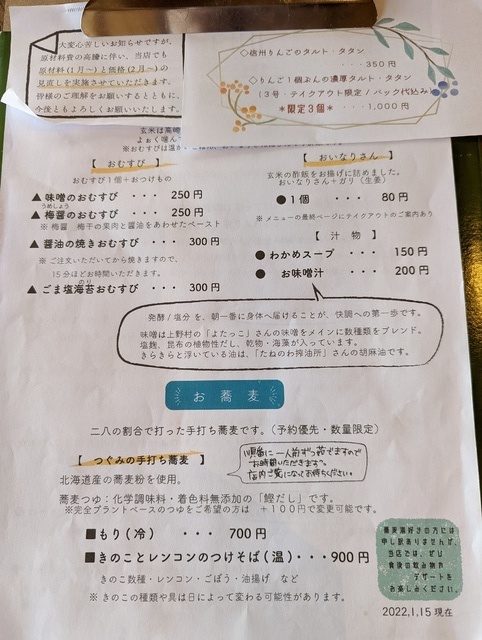 大変心苦しいお知らせですが、
原材料費の高騰に伴い、当店でも
原材料(1月～)と価格(2月～)の
見直しを実施させていただきます。
皆様のご理解をお願いするとともに、
今後ともよろしくお願いいたします。
◇信州りんごのタルト・タタン
・・・350円
◇りんご1個ぶんの濃厚タルト・タタン
(3号・テイクアウト限定/パック代込み)
*限定3個* ・・・1,000円
玄米は高崎
よぉく噛ん
※おむすびは温か
【 おむすび 】
おむすび1個+おつけもの
▲味噌のおむすび ・・・ 250円
うめしょう
▲梅醤のおむすび ・・・ 250円
※ 梅醤 梅干の果肉と醤油をあわせたペースト
▲醤油の焼きおむすび ・・・ 300円
※ ご注文いただいてから焼きますので、
15分ほどお時間いただきます。
のり
▲ごま塩海苔おむすび ・・・ 300円
【 おいなりさん 】
玄米の酢飯をお揚げに詰めました。
おいなりさん+ガリ(生姜)
●1個 ・・・ 80円
※ メニューの最終ページにテイクアウトのご案内あり
【 汁物 】
●わかめスープ ・・・ 150円
● お味噌汁 ・・・ 200円
発酵/塩分 を、朝一番に身体へ届けることが、快調への第一歩です。
味噌は上野村の「よたっこ」さんの味噌をメインに数種類をブレンド。
塩麹、昆布の植物性だし、乾物・海藻が入っています。
きらきらと浮いている油は、「たねのわ搾油所」さんの胡麻油です。
お蕎麦
二八の割合で打った手打ち蕎麦です。(予約優先・数量限定)
【 つぐみの手打ち蕎麦 】
順番に一人前ずつ茹でますので
お時間いただきます。
店内ご覧になってお待ちください。
北海道産の蕎麦粉を使用。
蕎麦つゆ:化学調味料・着色料無添加の「鰹だし」です。
※完全プラントベースのつゆをご希望の方は +100円で変更可能です。
■もり(冷) ・・・ 700円
■きのことレンコンのつけそば(温)・・・900円
きのこ数種・レンコン・ごぼう・油揚げ など
※ きのこの種類や具は日によって変わる可能性があります。
蕎麦湯好きの方には
申し訳ありませんが、
当店では、ぜひ
食後の飲み物や
デザートを
お楽しみください。
2022,1,15 現在